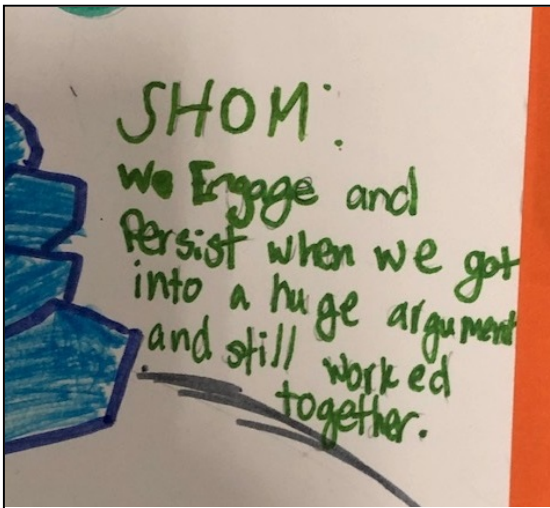 SHOM:
We Engage and
Persist when we got
into a huge argument
and still worked
together.